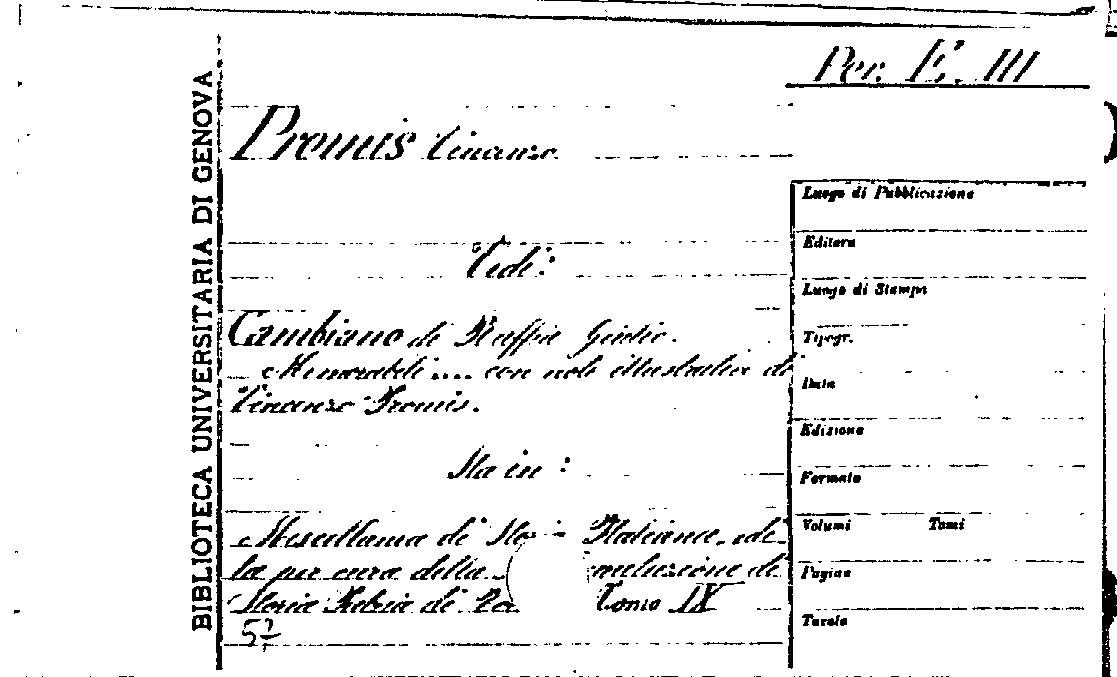 Per. E. III
BIBLIOTECA UNIVERSITARIA DI GENOVA
Promis Vincenzo
Vedi:
Cambiano de Ruffia Giulio.
Memorabili .... con note illustrative di
Vincenzo Promis.
Sta in:
Miscellanea di Sto Italiana, edi
ta per cura della
Storia Patria di Tomo IX
Luogo di Pubblicazione
Editore
Luogo di Stampa
Tipogr.
Data
Edizione
Formato
Volumi Tomi
Pagine
Tavole